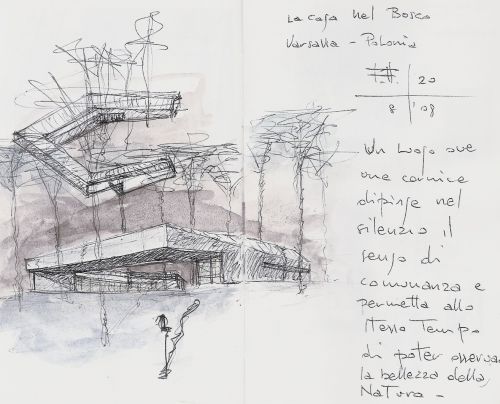 La casa nel Bosco
Varsavia - Polonia
# 20
8 '08
Un luogo ove
una cornice
dipinge nel
silenzio il
senso di
comunanza e
permetta allo
stesso tempo
di poter osservar
la bellezza della
Natura -